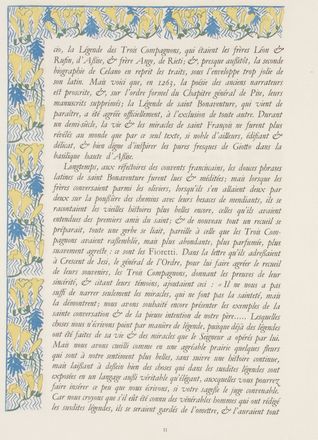 cio, la Légende des Trois Compagnons, qui étaient les frères Léon &
Rufin, d'Assise, & frère Ange, de Rieti; &, presque aussitôt, la seconde
biographie de Celano en reprit les traits, sous l'enveloppe trop jolie de
son latin. Mais voici que, en 1263, la poésie des anciens narrateurs
est proscrite, &, sur l'ordre formel du Chapitre général de Pise, leurs
manuscrits supprimés; la Légende de saint Bonaventure, qui vient de
paraître, a été agréée officiellement, à l'exclusion de toute autre. Durant
un demi-siècle, la vie & les miracles de saint François ne furent plus
révélés au monde que par ce seul texte, si noble d'ailleurs, édifiant &
délicat, & bien digne d'inspirer les pures fresques de Giotto dans la
basilique haute d'Assise.
Longtemps, aux réfectoires des couvents franciscains, les douces phrases
latines de saint Bonaventure furent lues & méditées; mais lorsque les
frères conversaient parmi les oliviers, lorsqu'ils s'en allaient deux par
deux sur la poussière des chemins avec leurs besaces de mendiants, ils se
racontaient les vieilles histoires plus belles encore, celles qu'ils avaient
entendues des premiers amis du saint; & de nouveau tout un recueil se
préparait, toute une gerbe se liait, pareille à celle que les Trois Com-
pagnons avaient rassemblée, mais plus abondante, plus parfumée, plus
suavement agreste : ce sont les Fioretti. Dans la lettre qu'ils adressaient
à Crescent de Jesi, le général de l'Ordre, pour lui faire agréer le recueil
de leurs souvenirs, les Trois Compagnons, donnant les preuves de leur
sincérité, & citant leurs témoins, ajoutaient ceci : « Il ne nous a pas
suffi de narrer seulement les miracles, qui ne font pas la sainteté, mais
la démontrent; nous avons souhaité encore présenter les exemples de la
sainte conversation & de la pieuse intention de notre père.... Lesquelles
choses nous n'écrivons point par manière de légende, puisque déjà des légendes
ont été faites de sa vie & des miracles que le Seigneur a opérés par lui.
Mais nous avons cueilli comme en une agréable prairie quelques fleurs
qui sont à notre sentiment plus belles, sans suivre une histoire continue,
mais laissant à dessein bien des choses qui dans les susdites légendes sont
exposées en un langage aussi véritable qu'élégant, auxquelles vous pourrez
faire insérer ce peu que nous écrivons, si votre sagesse le juge convenable.
Car nous croyons que s'il eût été connu des vénérables hommes qui ont rédigé
les susdites légendes, ils se seraient gardés de l'omettre, & l'auraient tout
11